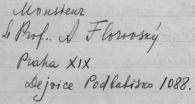 Monsieur
le Prof. A Florovský
Praha XIX
Dejvice Podbabisko 1088.